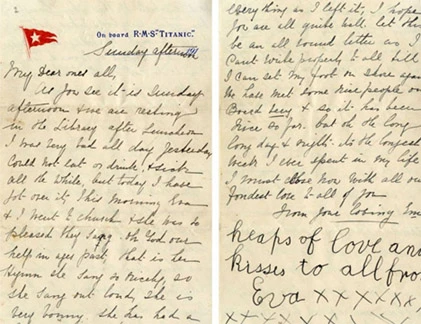 On board R.M.S. "TITANIC."
Sunday afternoon
My Dear ones all,
As you see it is Sunday
afternoon & we are resting
in the Library after Luncheon
I was very bad all day Yesterday
Could not eat or drink, & sick
all the while, but today I have
got over it, This morning Eva
& I went to church & she was so
pleased they sang Oh God our
help in ages past, that is her
Hymn she sang so nicely, so
she sang out loud, she is
very bonny. she has had a
everything as I left it, I hope
you are all quite well let this
be an all round letter as I
Can't write properly to all till
I can set my foot on shore again
We have met some nice people on
Board Lucy & so it has been
nice so far. but oh the long
long days & nights its the longest
Week I ever spent in my life
I must close Now with all our
fondest love to all of you
From your loving
heaps of love and
kisses to all from
Eva xxxxxxx
xxxxxxx